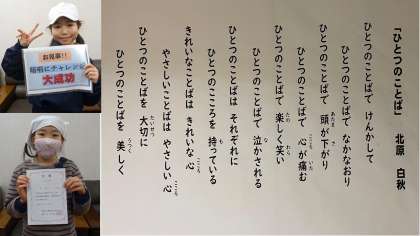 お見事!!
暗唱にチャレンジ
大成功
「ひとつのことば」 北原 白秋
ひとつのことばで けんかして
ひとつのことばで なかなおり
ひとつのことばで 頭が下がり
ひとつのことばで 心が痛む
ひとつのことばで 楽しく笑い
ひとつのことばで 泣かされる
ひとつのことばは それぞれに
ひとつのこころを 持っている
きれいなことばは きれいな心
やさしいことばは やさしい心
ひとつのことばを 大切に
ひとつのことばを 美しく